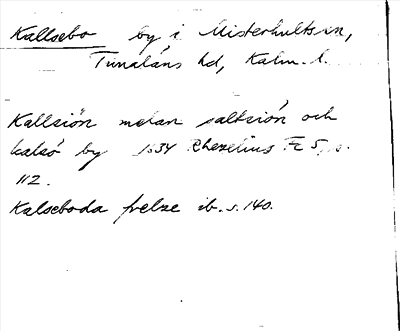 Kallsebo by i Misterhults sn,
Tunaläns hd, Kalm. l.
Kallsiön melan saltsiön och
kalsö by 1634 Rhezelius Fc 5, s.
112.
Kalseboda frelse ib. s. 140.